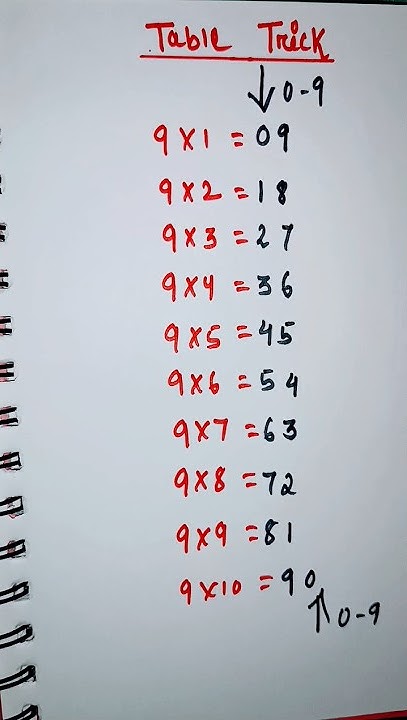 Table Trick
↓ 0-9
9 × 1 = 09
9 × 2 = 18
9 × 3 = 27
9 × 4 = 36
9 × 5 = 45
9 × 6 = 54
9 × 7 = 63
9 × 8 = 72
9 × 9 = 81
9 × 10 = 90
↑ 0-9